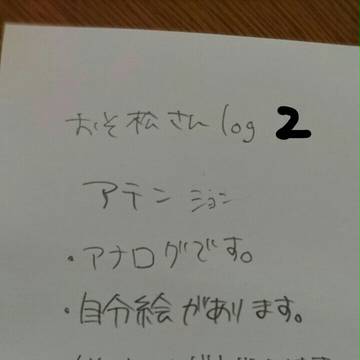 おそ松さん log 2
アテンション
・アナログです。
・自分絵があります。